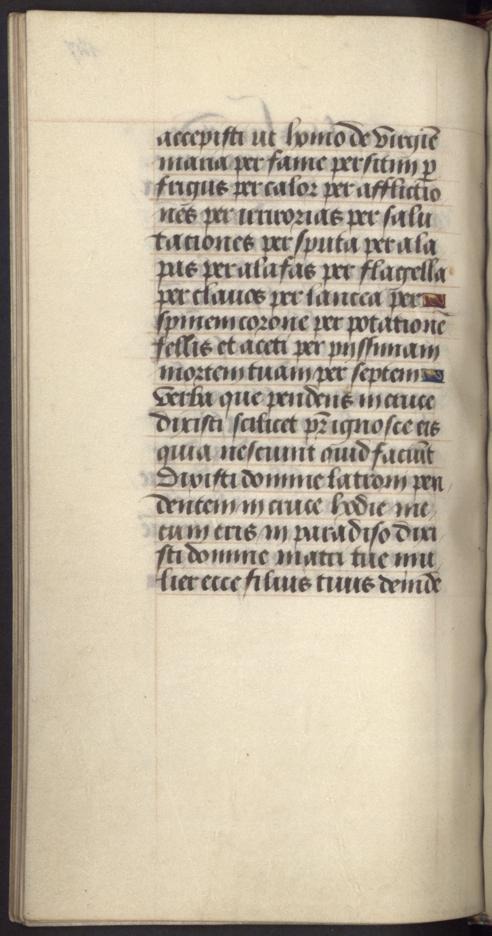 accepisti ut homo de v̄irgīe
maria per fame per sitim p̄
frigus per calor per afflictio
nes per iniurias per salu
tationes per sputa per ala
pas per alafas per flagella
per claues per lancea per
spineincorone per potationē
fellis et aceti per piissimam
mortem tuam per septem
verba que pendens in cruce
dixisti scilicet pr̄ ignosce eis
quia nesciunt quid faciūt
Dixisti domine latroni pen
dentem in cruce hodie me
cum eris in paradiso dixi
sti domine matri tue mu
lier ecce filius tuus deinde